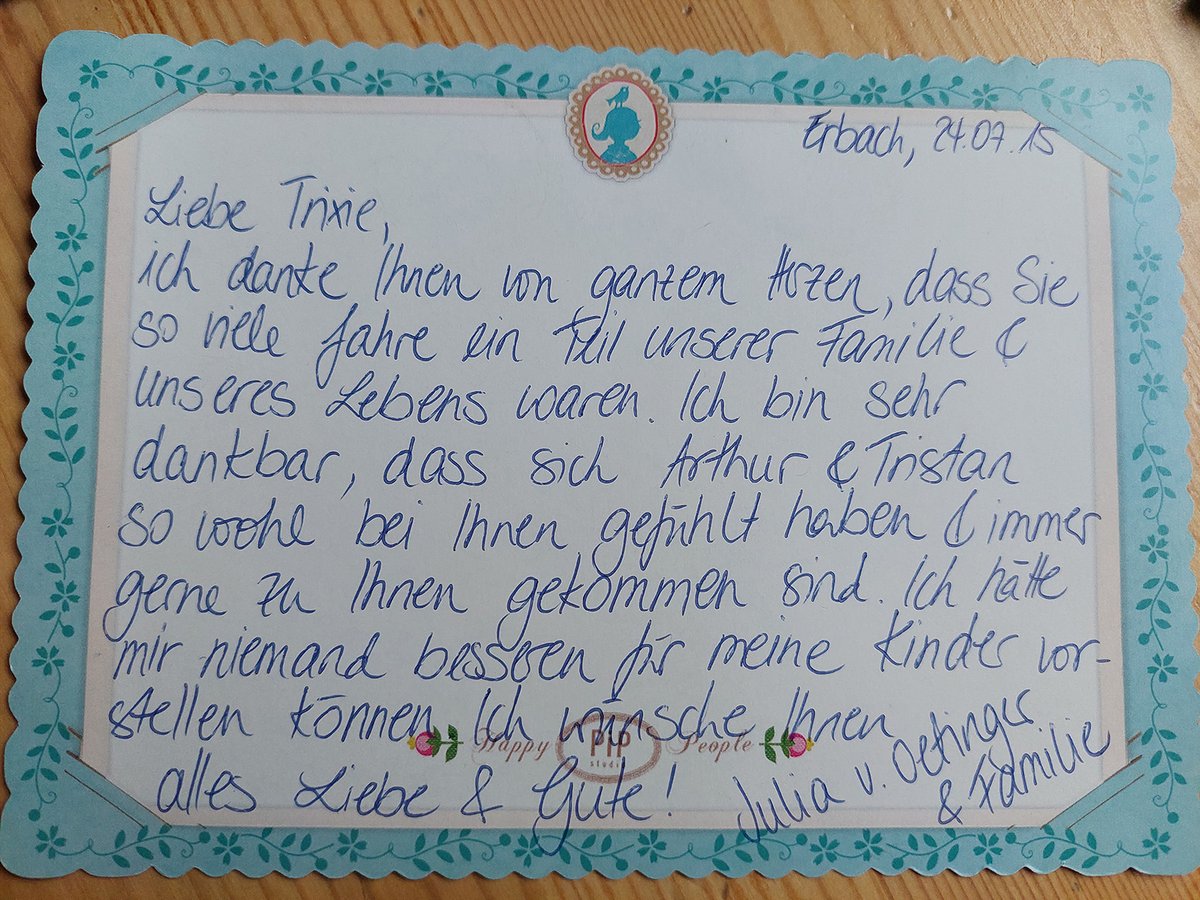 Erbach, 24.07.15
Liebe Trixie,
ich danke Ihnen von ganzem Herzen, dass Sie
so viele Jahre ein Teil unserer Familie &
unseres Lebens waren. Ich bin sehr
dankbar, dass sich Arthur & Tristan
so wohl bei Ihnen gefühlt haben & immer
gerne zu Ihnen gekommen sind. Ich hätte
mir niemand besseren für meine Kinder vor-
stellen können. Ich wünsche Ihnen
alles Liebe & Gute!
Julia v. Oetinger
& Familie
Happy PiP studio People